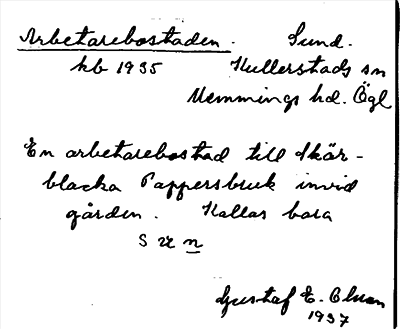 Arbetarebostaden. Sund.
kb 1935 Kullerstads sn
Memmings hd. Ögl
En arbetarebostad till Skär-
blacka Pappersbruk invid
gården. Kallas bara
s u n
Gustaf E. Olsson
1937